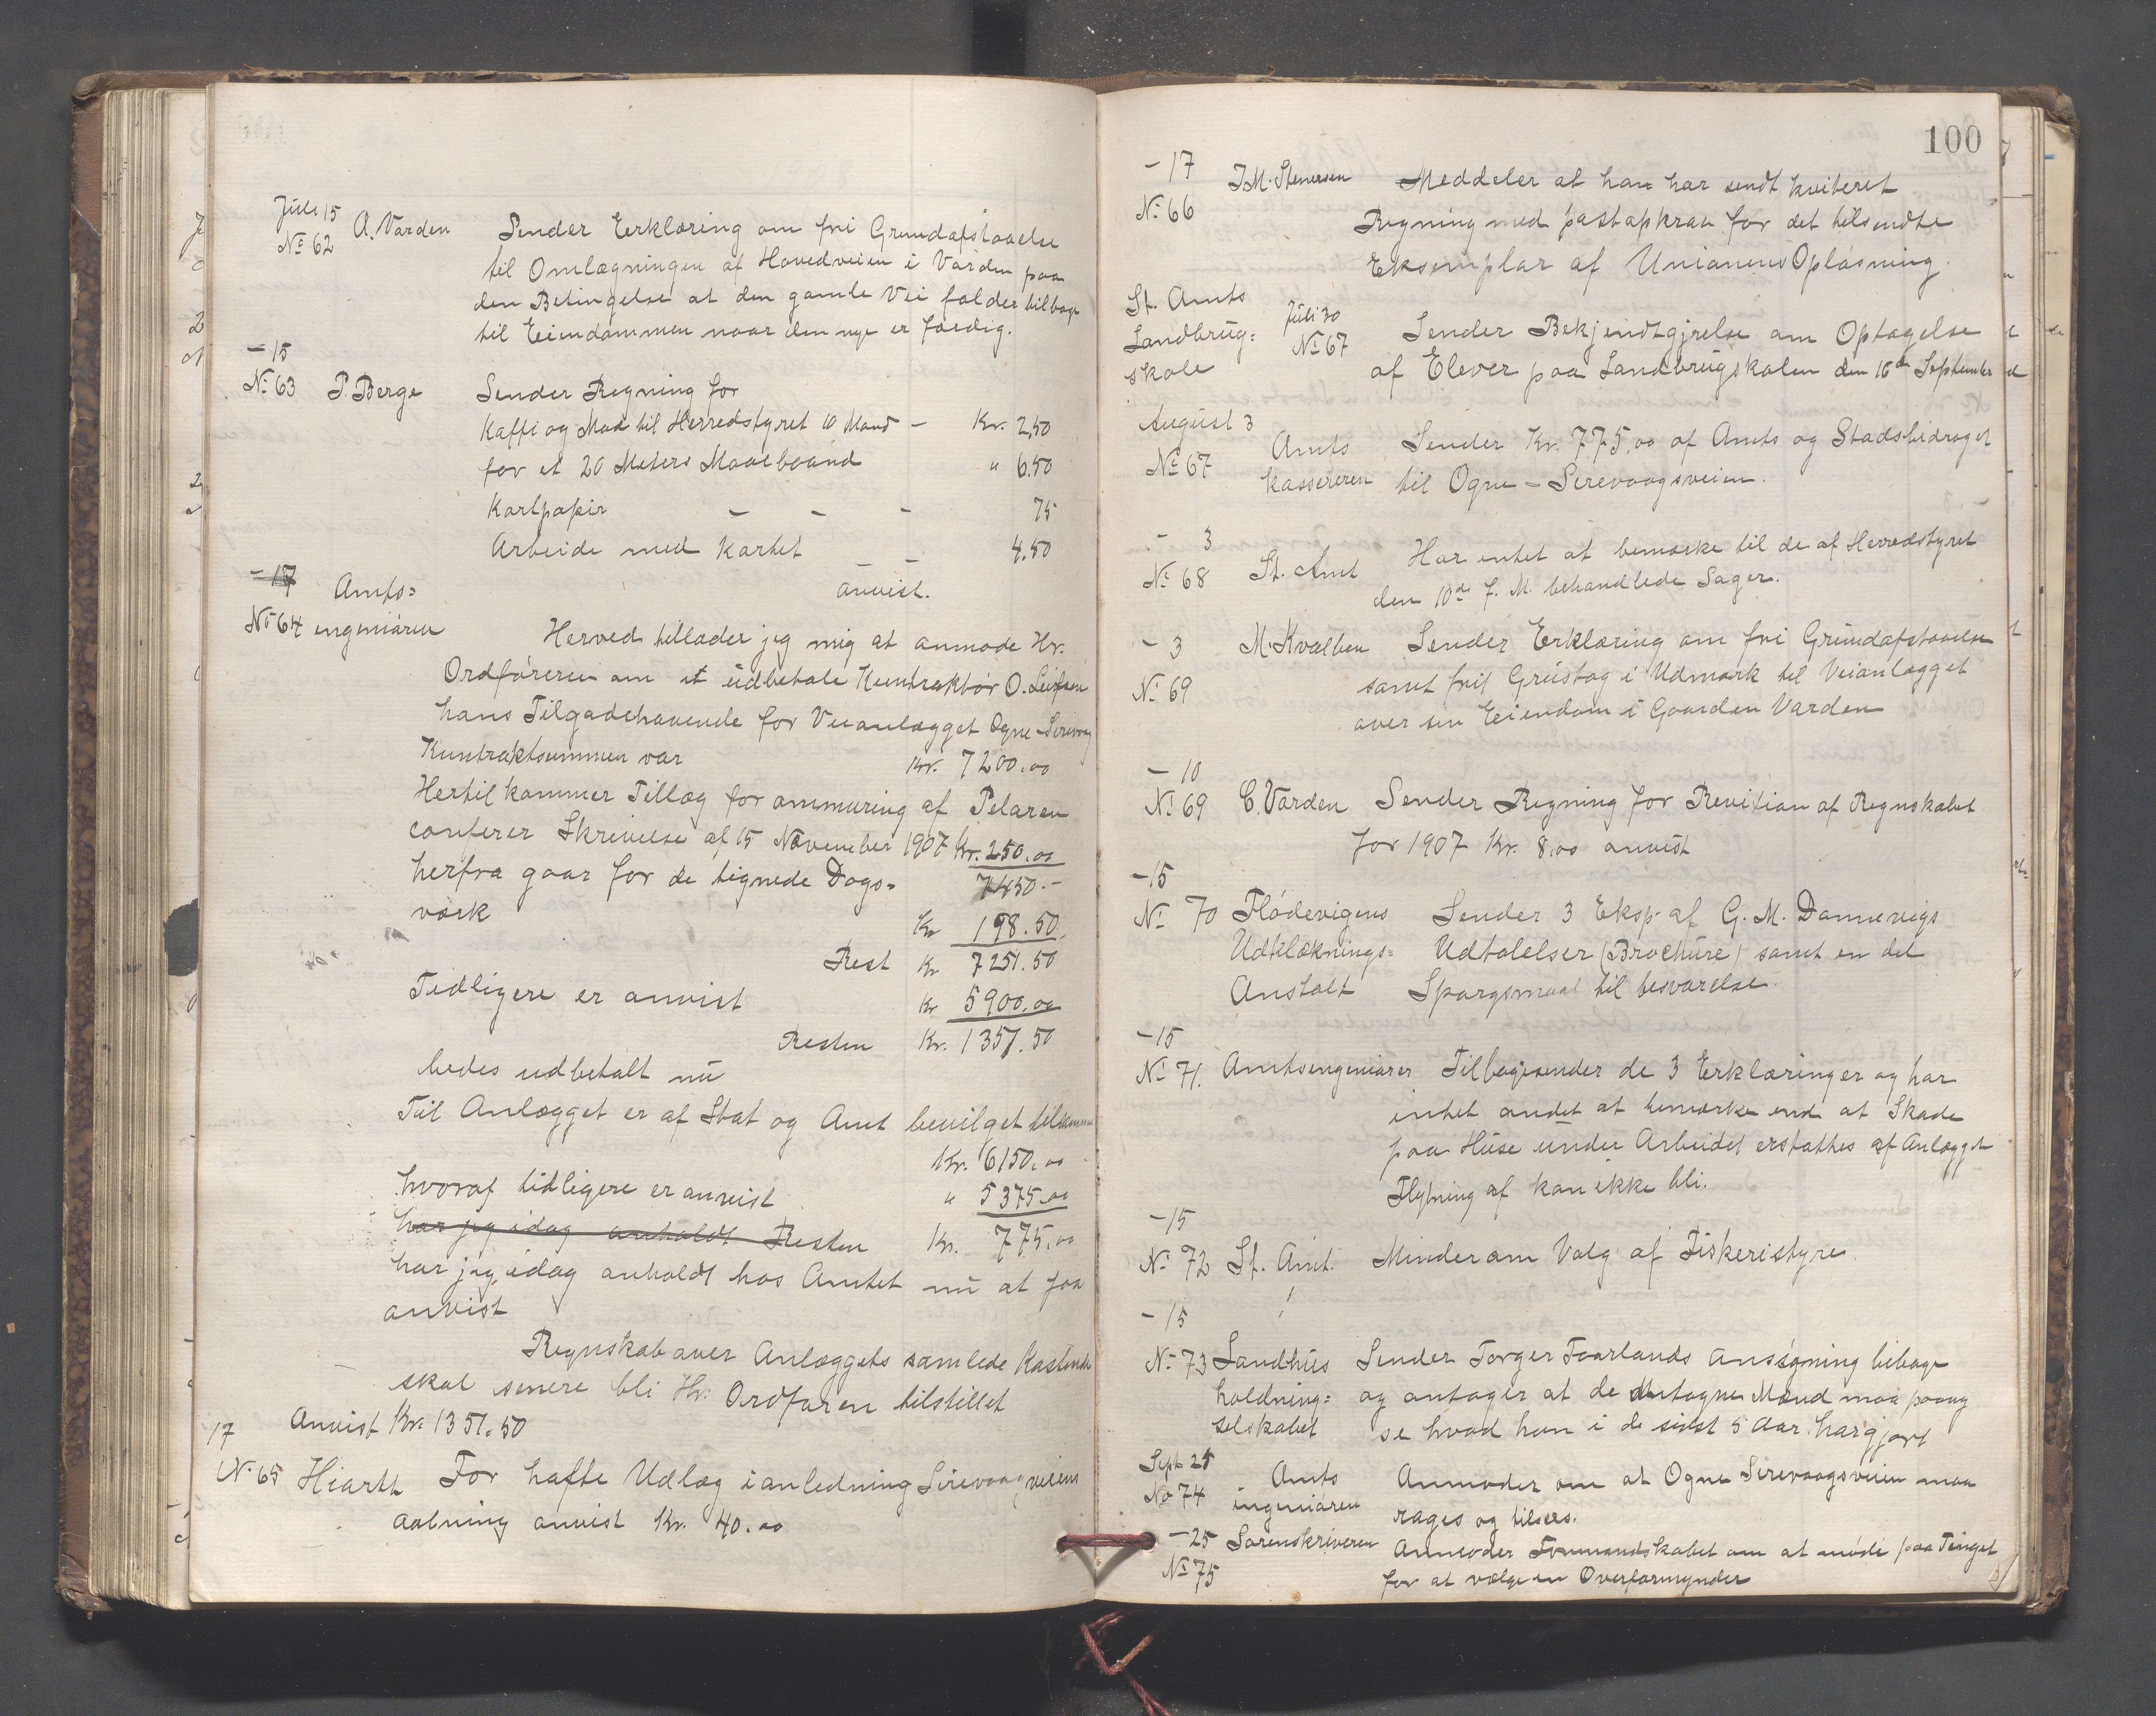 Juli 15
No 62
A. Varden
Sender Erklæring om fri Grundafstaaelse
til Omlægningen af Hovedveien i Varden paa
den Betingelse at den gamle Vei falder tilbage
til Eiendommen naar den nye er færdig.
- 15
No 63
P. Berge
Sender Regning for
Kaffi og Mad til Herredstyret 10 Mand - Kr. 2,50
for et 20 Meters Maalebaand " 6.50
Kartpapir - - - 75
Arbeide med Kartet - 4.50
anvist.
- 17
No 64
Amts=
ingeniøren
Herved tillader jeg mig at anmode Hr.
Ordføreren om at udbetale Kuntraktør O. Leifsen
hans Tilgodehavende for Veianlægget Ogne-Sirevaag
Kuntraktsummen var Kr. 7200.00
Hertil kommer Tillæg for ommuring af Pelaren
conferer Skrivelse af 15 November 1907 Kr. 250.00
herfra gaar for de lignede Dags= 7450.-
værk
Kr 198.50
Rest Kr 7251.50
Tidligere er anvist Kr 5900.00
Resten Kr. 1351.50
bedes udbetalt nu
Til Anlægget er af Stat og Amt bevilget tilsammen
Kr. 6150.00
hvoraf tidligere er anvist " 5375.00
har jeg idag anholdt Resten Kr. 775.00
har jeg idag anholdt hos Amtet nu at faa
anvist
Regnskab over Anlæggets samlede Kostende
skal senere bli Hr. Ordføren tilstillet
Anvist Kr. 1351.50
17
No 65
Hiorth
For hafte Udlæg i anledning Sirevaagveiens
aabning anvist Kr. 40.00
100
- 17
No 66
J M. Stenersen
Meddeler at han har sendt kviteret
Regning med postopkrav for det tilsendte
Eksemplar af Unionens Opløsning.
St. Amts
Landbrug=
skole
Juli 30
No 67
Sender Bekjendtgjrelse om Optagelse
af Elever paa Landbrugskolen den 16de September
August 3
No 67
Amts
kassereren
Sender Kr. 775,00 af Amts og Stadsbidraget
til Ogne - Sirevaagsveien.
- 3
No 68
St. Amt
Har intet at bemærke til de af Herredstyret
den 10de f. M. behandlede Sager.
- 3
No 69
M. Kvalben
Sender Erklæring om fri Grundafstaaelse
samt frit Grustag i Udmark til Veianlægget
over sin Eiendom i Gaarden Varden
- 10
No 69
C. Varden
Sender Regning for Revition af Regnskabet
for 1907 Kr. 8,00 anvist
- 15
No 70
Flødevigens
Udklæknings=
Anstalt
Sender 3 Eksp. af G. M. Dannevigs
Udtalelser (Brochure) samt en del
Spørgsmaal til besvarelse.
- 15
No 71.
Amtsingeniører
Tilbagesender de 3 Erklæringer og har
intet andet at bemærke end at Skade
paa Huse under Arbeidet erstattes af Anlægget
Flytning af kan ikke bli.
- 15
No 72
St. Amt.
Minder om Valg af Fiskeristyre
- 15
No 73
Landhus
holdning=
selskabet
Sender Torger Torlands Ansøgning tilbage
og antager at de Antagne Mænd maa paasey
se hvad han i de sidst 5 Aar har gjort
Sept 25
No 74
Amts
ingeniøren
Anmoder om at Ogne Sirevaagsveien maa
rages og tilsees.
- 25
No 75
Sorenskriveren
Anmoder Formandskabet om at møde paa Tinget
for at vælge en Overformynder